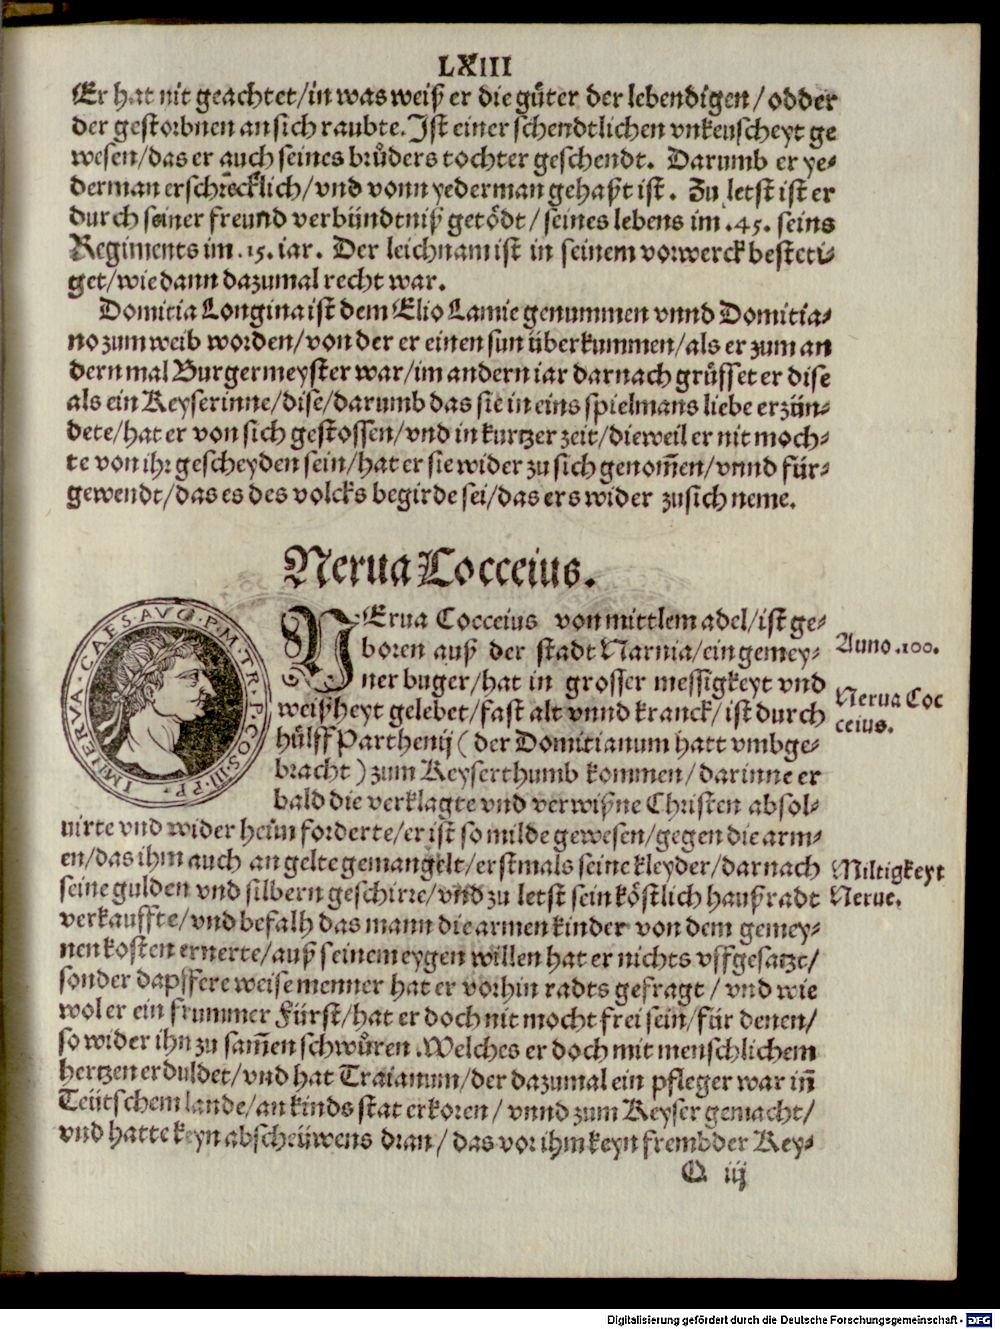 LXIII
Er hat nit geachtet/in was weiß er die guͤter der lebendigen/odder
der gestorbnen an sich raubte. Ist einer schendtlichen vnkeuscheyt ge
wesen/das er auch seines bruͦders tochter geschendt. Darumb er ye-
derman erschrecklich/vnd vonn yederman gehaßt ist. Zu letst ist er
durch seiner freund verbündtniß getödt/seines lebens im .45. seins
Regiments im .15. iar. Der leichnam ist in seinem vorwerck besteti-
get/wie dann dazumal recht war.
Domitia Longina ist dem Elio Lamie genummen vnnd Domitia-
no zum weib worden/von der er einen sun überkummen/als er zum an
dern mal Burgermeyster war/im andern iar darnach gruͤsset er dise
als ein Keyserinne/dise/darumb das sie in eins spielmans liebe erzün-
dete/hat er von sich gestossen/vnd in kurtzer zeit/dieweil er nit moch-
te von ihr gescheyden sein/hat er sie wider zu sich genom̄en/vnnd für-
gewendt/das es des volcks begirde sei/das ers wider zu sich neme.
Nerua Cocceius.
IMP. NERVA. CAES. AVG. P. M. TR. P. COS. III. PP.
NErua Cocceius von mittlem adel/ist ge-
boren auß der stadt Narnia/ein gemey-
ner buger/hat in grosser messigkeyt vnd
weißheyt gelebet/fast alt vnnd kranck/ist durch
hülff Parthenij (der Domitianum hatt vmbge-
bracht) zum Keyserthumb kommen/darinne er
bald die verklagte vnd verwißne Christen absol-
uirte vnd wider heim forderte/er ist so milde gewesen/gegen die arm-
en/das ihm auch an gelte gemangelt/erstmals seine kleyder/darnach
seine gulden vnd silbern geschirre/vnd zu letst sein köstlich haußradt
verkauffte/vnd befalh das mann die armen kinder von dem gemey-
nen kosten ernerte/auß seinem eygen willen hat er nichts vffgesatzt/
sonder dapffere weise menner hat er vorhin radts gefragt/vnd wie
wol er ein frummer Fürst/hat er doch nit mocht frei sein/für denen/
so wider ihn zu sam̄en schwuͤren. Welches er doch mit menschlichem
hertzen erduldet/vnd hat Traianum/der dazumal ein pfleger war in̄
Teütschem lande/an kinds stat erkoren/vnnd zum Keyser gemacht/
vnd hatte keyn abscheüwens dran/das vor ihm keyn frembder Key-
Q iij
Anno .100.
Nerua Coc
ceius.
Miltigkeyt
Nerue.
Digitalisierung gefördert durch die Deutsche Forschungsgemeinschaft - DFG